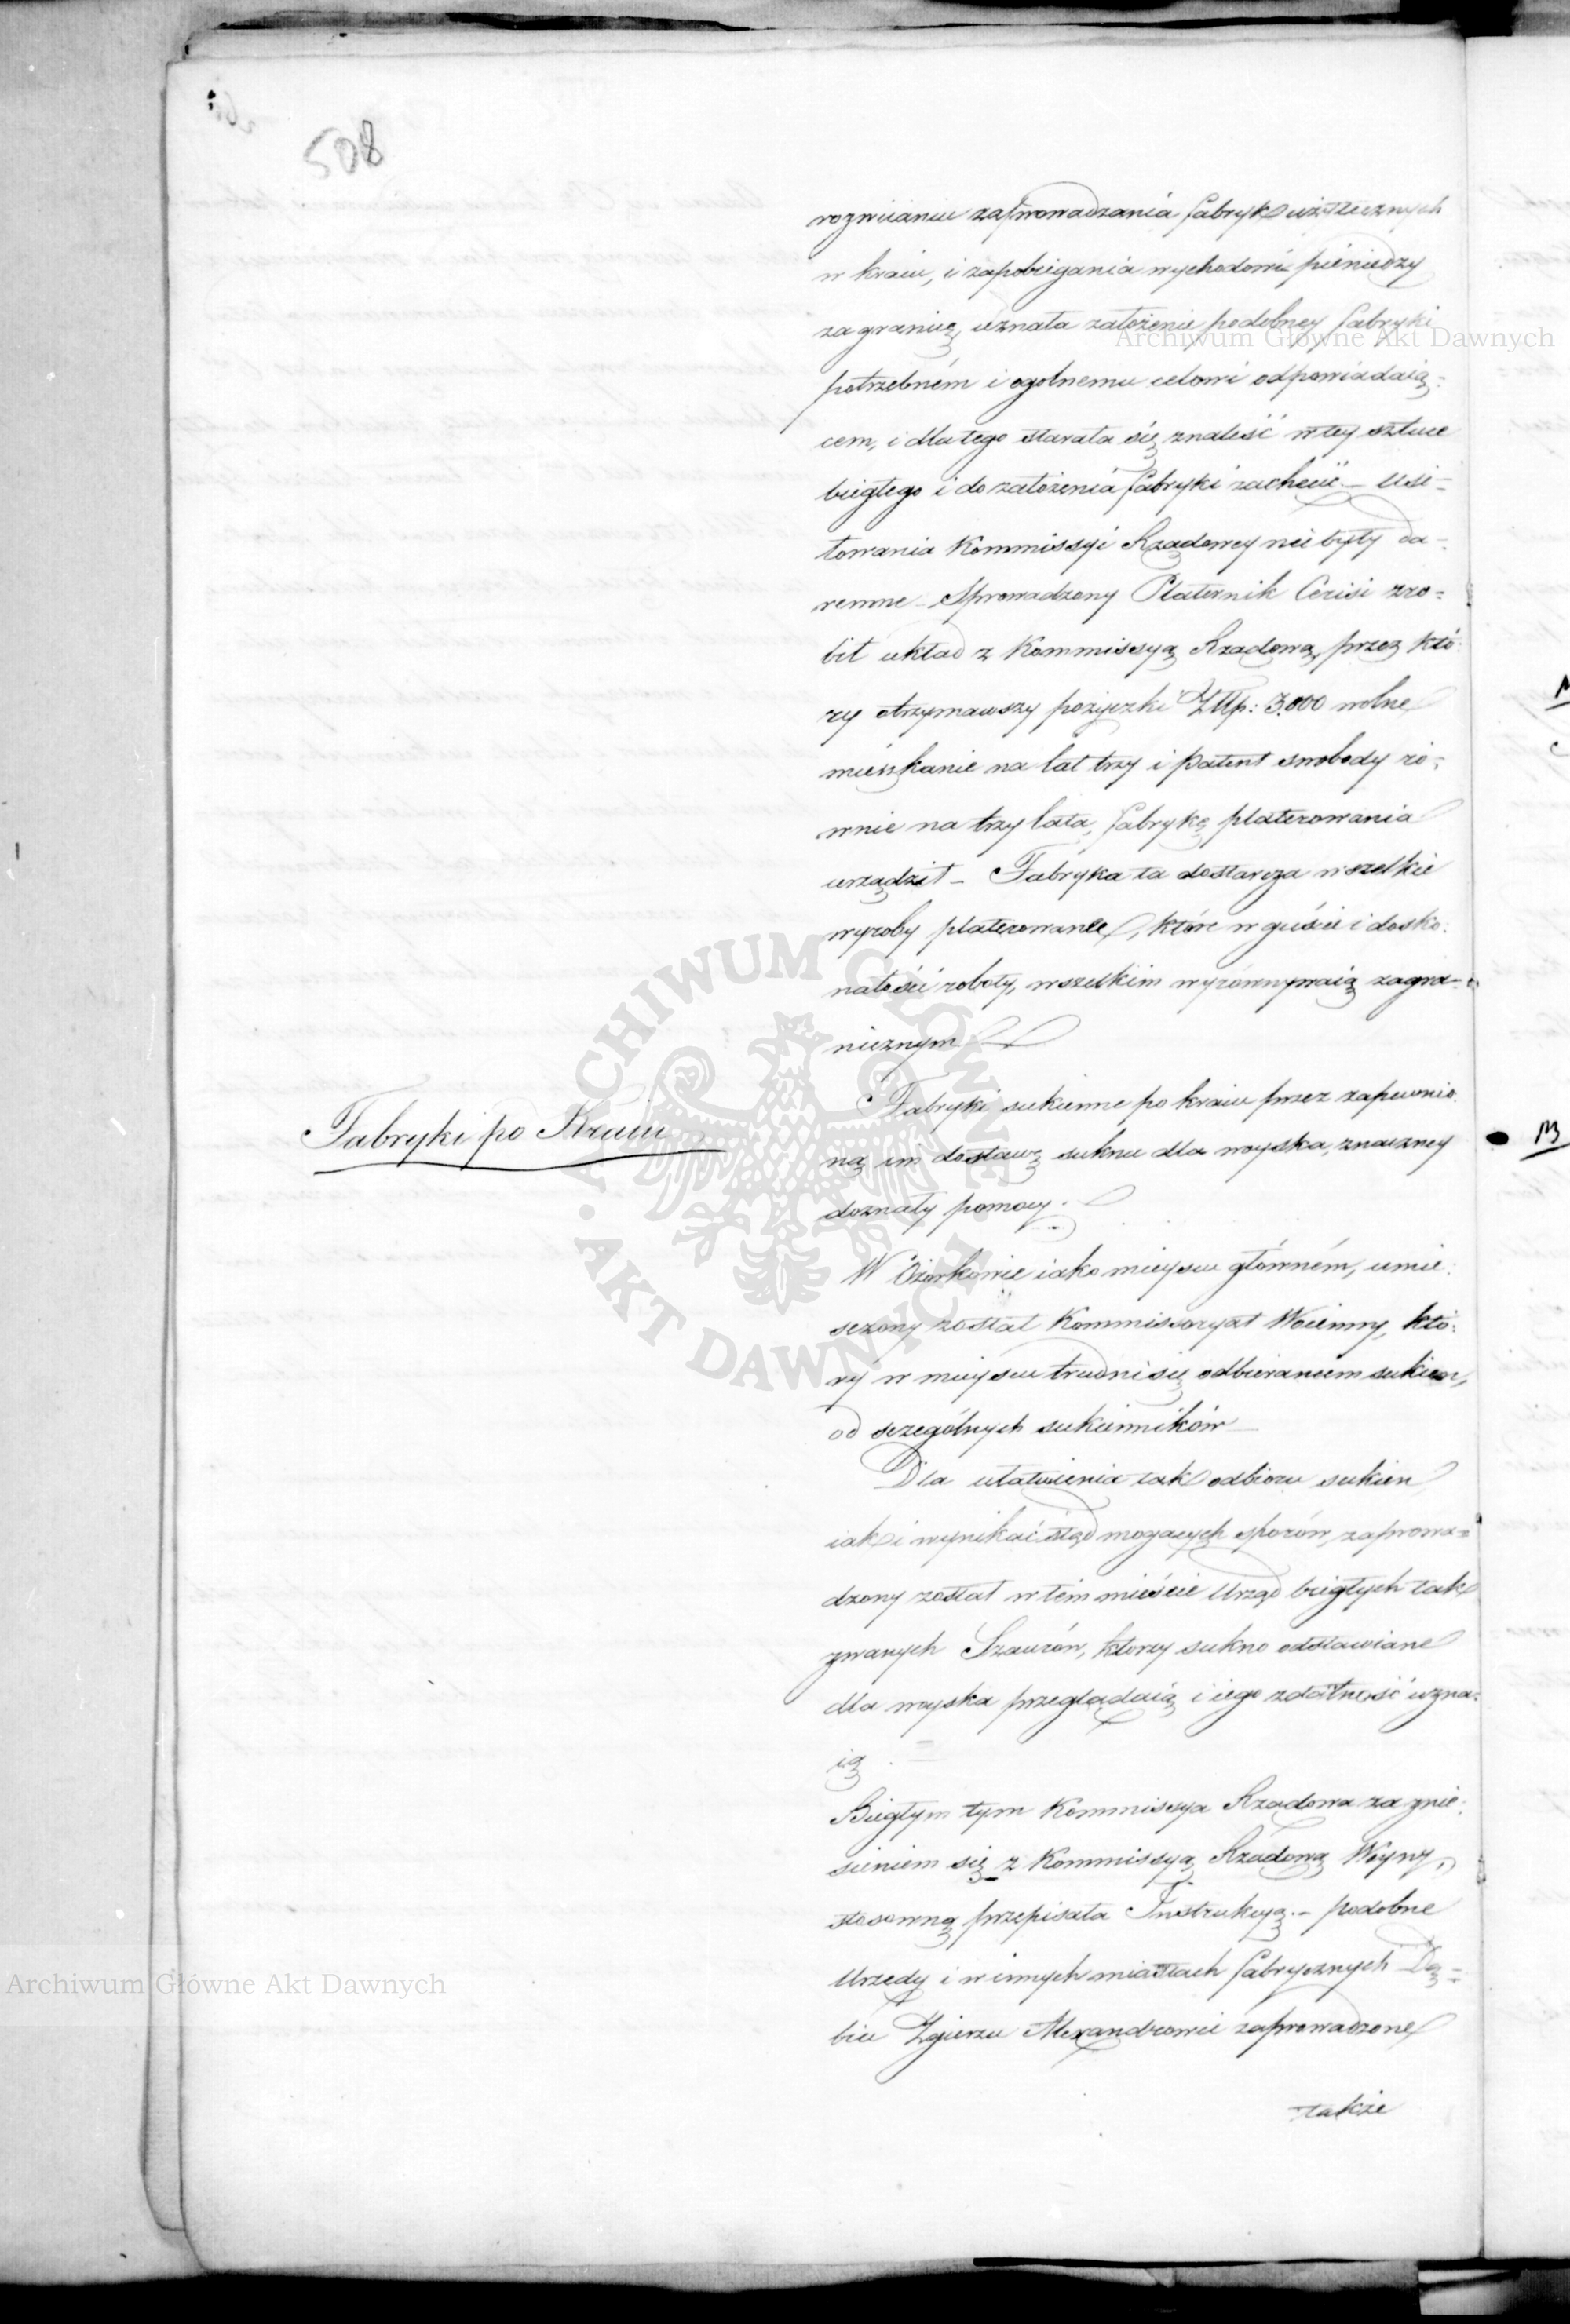 508
rozwiianiu zaprowadzania fabryk użytecznych
w kraiu, i zapobiegania wychodowi pieniędzy
za granicę, uznała założenie podobney fabryki
potrzebném i ogolnemu celowi odpowiadaią=
cem, i dla tego starała się znaleść w tey sztuce
biegłego i do założenia fabryki zachęcić – Usi=
łowania Kommissyi Rządowey nie były da=
remne – Sprowadzony Platernik Cerisi zro=
bił układ z Kommissyą Rządową, przez któ=
ry otrzymawszy pożyczki Złłp: 3.000 wolne
mieszkanie na lat trzy i patent swobody ró=
wnie na trzy lata, fabrykę platerowania
urządził – Fabryka ta dostarcza wszelkie
wyroby platerowane, które w guście i dosko=
nałości roboty, wszelkim wyrównywaią zagra=
nicznym
Fabryki po Kraiu
Fabryki sukienne po kraiu przez zapewnio
ną im dostawę sukna dla woyska, znaczney
doznały pomocy.
W Ozorkowie iako mieyscu główném, umie=
sczony został Kommissoryat Woienny, któ=
ry w mieyscu trudni się odbieraniem sukien,
od sczególnych sukienników –
Dla ułatwienia tak odbioru sukien
iak i wynikać ztąd mogących sporów, zaprowa=
dzony został w tém mieście Urząd biegłych tak
zwanych Szaurów, ktorzy sukno odstawiane
dla woyska przeglądaią i iego zdatność uzna=
ią
Biegłym tym Kommissya Rządowa za znie=
sieniem się z Kommissyą Rządową Woyny,
stosowną przepisała Instrukcyą. – podobne
Urzędy i w innych miastach fabrycznych Dą=
biu Zgierzu Alexandrowie zaprowadzone
także
Archiwum Główne Akt Dawnych
Archiwum Główne Akt Dawnych
ARCHIWUM GŁÓWNE
AKT DAWNYCH